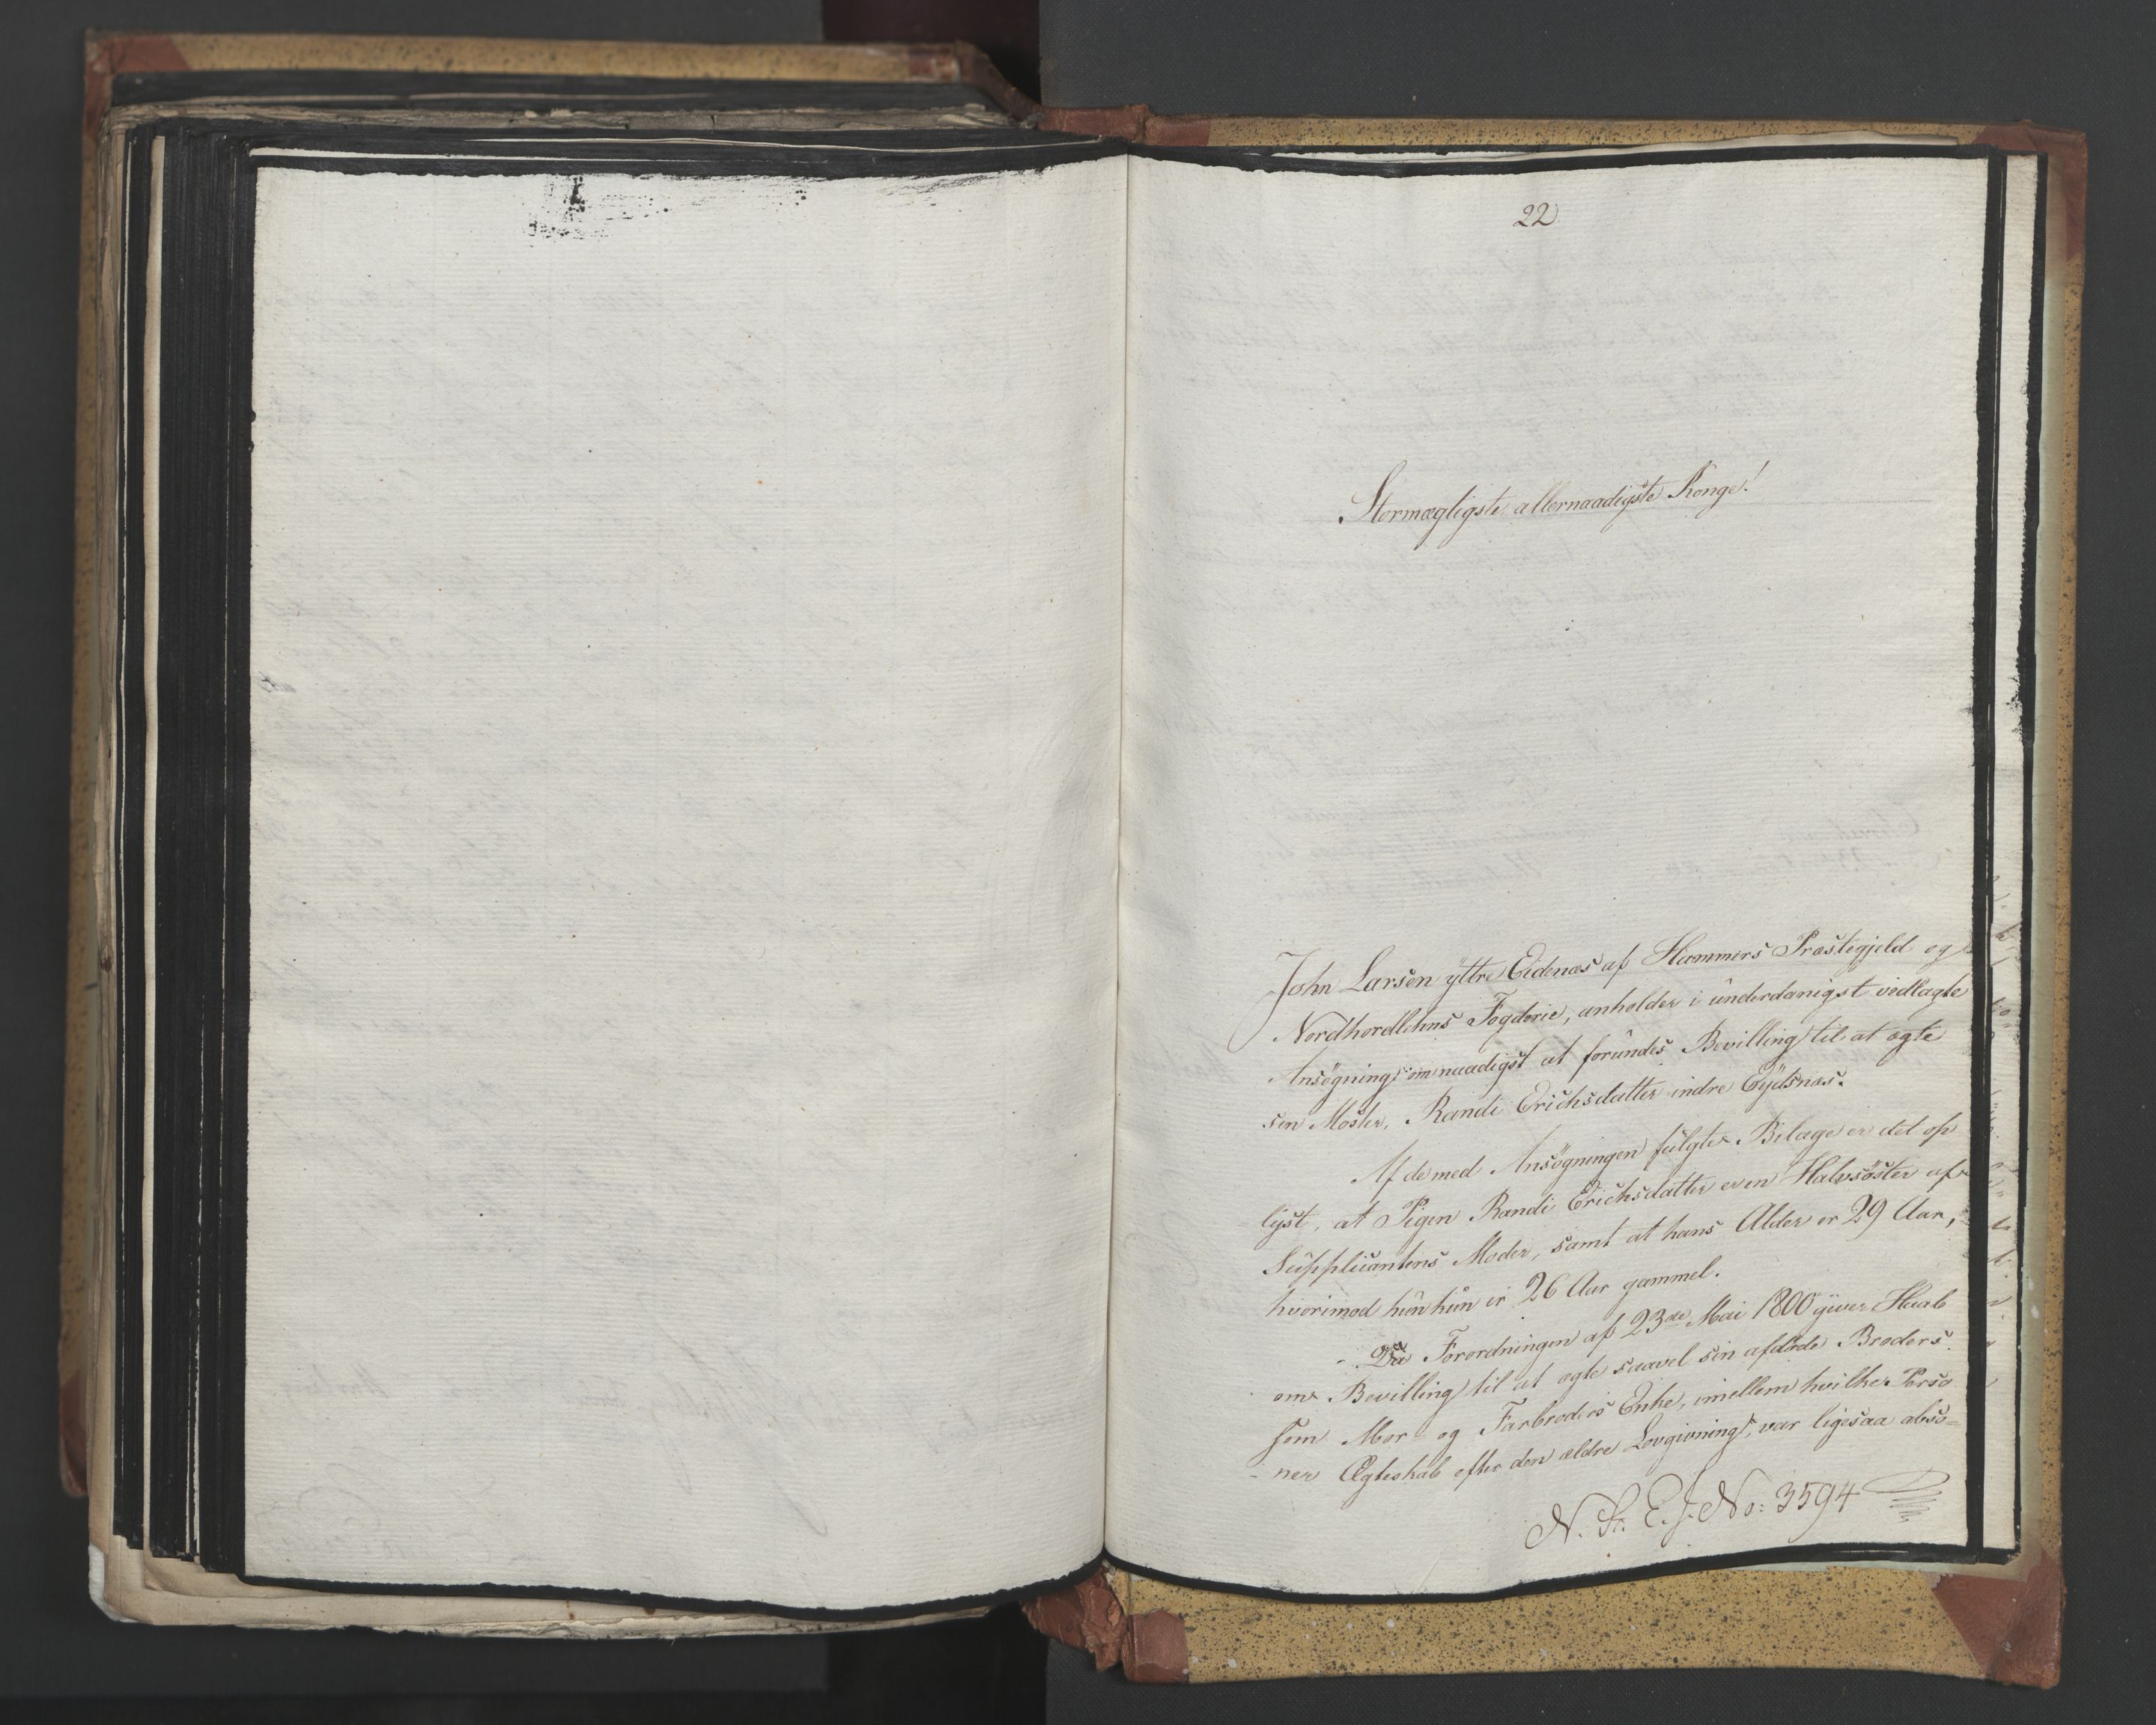 22
Stormægtigste allernaadigste Konge!
John Larsen yttre Eidenæs af Hammers Præstegjeld og
Nordhordlehns Fogderie, anholder i ünderdanigst vedlagte
Ansøgning om naadigst at foründes Bevilling til at ægte
sin Moster, Randi Erichsdatter indre Eydsnæs.
Af de med Ansøgningen fülgte Bilage er det op
lÿst, at Pigen Randi Erichsdatter er en Halvsøster af
Süpplicantens Moder, samt at hans Alder er 29 Aar,
hvorimod hün kün er 26 Aar gammel.
Da Forordningen af 23de Mai 1800 giver Haab
om Bevilling til at ægte saavel sin afdøde Broders
som Mor- og Farbroders Enke, imellem hvilke Perso
ner Ægteskab efter den ældre Lovgivning, var ligesaa abso-
N. St. E. J. No: 3594